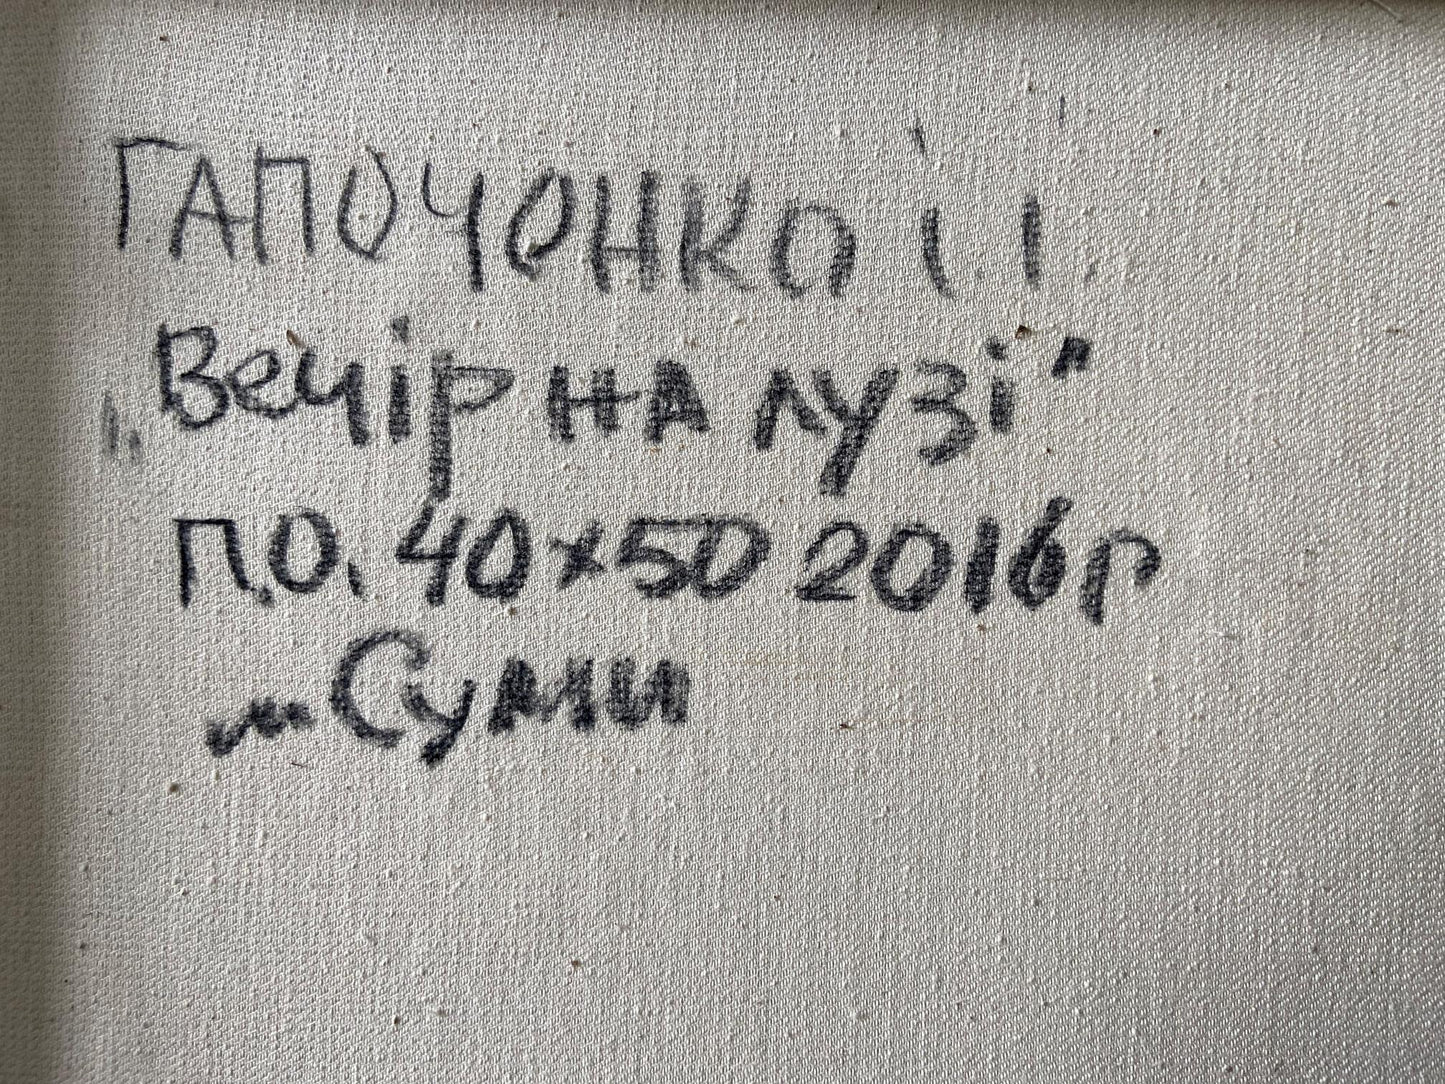 ГАПОЧОНКО І. І.
„Вечір на лузі"
П.О. 40×50 2016 р
м. Суми